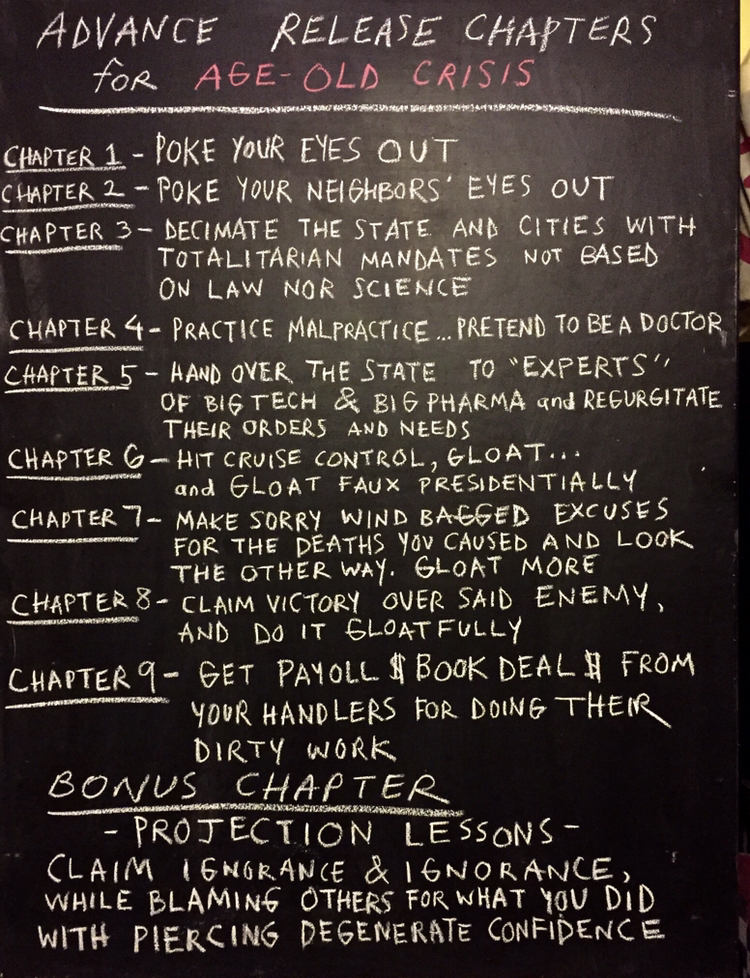 ADVANCE RELEASE CHAPTERS
for AGE-OLD CRISIS
CHAPTER 1 - POKE YOUR EYES OUT
CHAPTER 2 - POKE YOUR NEIGHBORS' EYES OUT
CHAPTER 3 - DECIMATE THE STATE AND CITIES WITH
TOTALITARIAN MANDATES NOT BASED
ON LAW NOR SCIENCE
CHAPTER 4 - PRACTICE MALPRACTICE... PRETEND TO BE A DOCTOR
CHAPTER 5 - HAND OVER THE STATE TO "EXPERTS"
OF BIG TECH & BIG PHARMA and REGURGITATE
THEIR ORDERS AND NEEDS
CHAPTER 6 - HIT CRUISE CONTROL, GLOAT...
and GLOAT FAUX PRESIDENTIALLY
CHAPTER 7 - MAKE SORRY WIND BAGGED EXCUSES
FOR THE DEATHS YOU CAUSED AND LOOK
THE OTHER WAY. GLOAT MORE
CHAPTER 8 - CLAIM VICTORY OVER SAID ENEMY,
AND DO IT GLOATFULLY
CHAPTER 9 - GET PAYOLL $ BOOK DEAL $ FROM
YOUR HANDLERS FOR DOING THEIR
DIRTY WORK
BONUS CHAPTER
- PROJECTION LESSONS -
CLAIM IGNORANCE & IGNORANCE,
WHILE BLAMING OTHERS FOR WHAT YOU DID
WITH PIERCING DEGENERATE CONFIDENCE